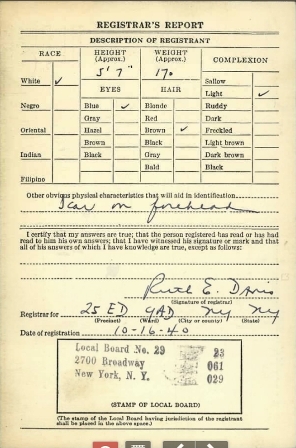 REGISTRAR'S REPORT
DESCRIPTION OF REGISTRANT
RACE HEIGHT (Approx.) WEIGHT (Approx.) COMPLEXION
5' 7" 170
White ✓ Sallow
EYES HAIR Light ✓
Negro Blue ✓ Blonde Ruddy
Gray Red Dark
Oriental Hazel Brown ✓ Freckled
Brown Black Light brown
Indian Black Gray Dark brown
Bald Black
Filipino
Other obvious physical characteristics that will aid in identification
Scar on forehead
I certify that my answers are true; that the person registered has read or has
had read to him his own answers; that I have witnessed his signature or mark and that
all of his answers of which I have knowledge are true, except as follows:
Ruth E. Davis
(Signature of registrar)
Registrar for 25 ED 9AD NY NY
(Precinct) (Ward) (City or county) (State)
Date of registration 10-16-40
Local Board No. 29 23
2700 Broadway 061
New York, N. Y. 029
(STAMP OF LOCAL BOARD)
(The stamp of the Local Board having jurisdiction of the registrant
shall be placed in the above space.)